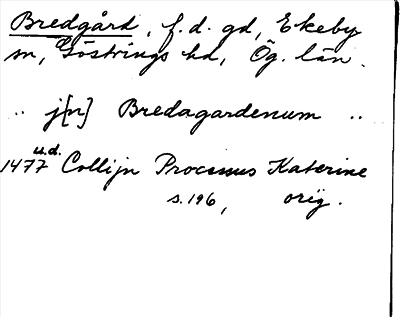 Bredgård, f.d. gd, Ekeby
sn, Göstrings hd, Ög. län.
.. j[n] Bredagardenum ..
1477 u.d. Collijn Processus Katerine
s. 196, orig.